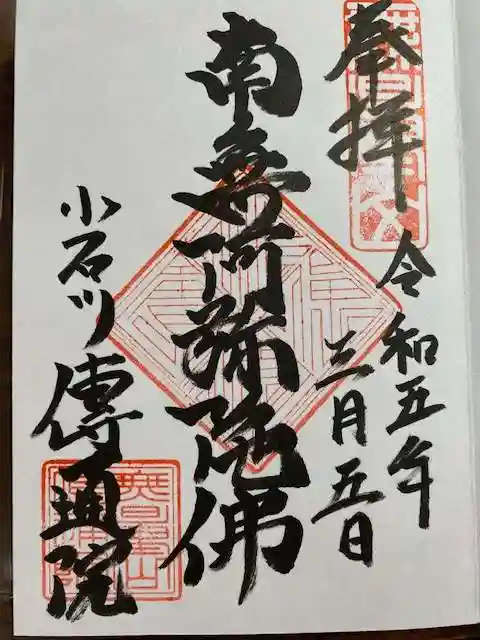 奉拝
令和五年
三月五日
南無阿弥陀佛
小石川
傳通院